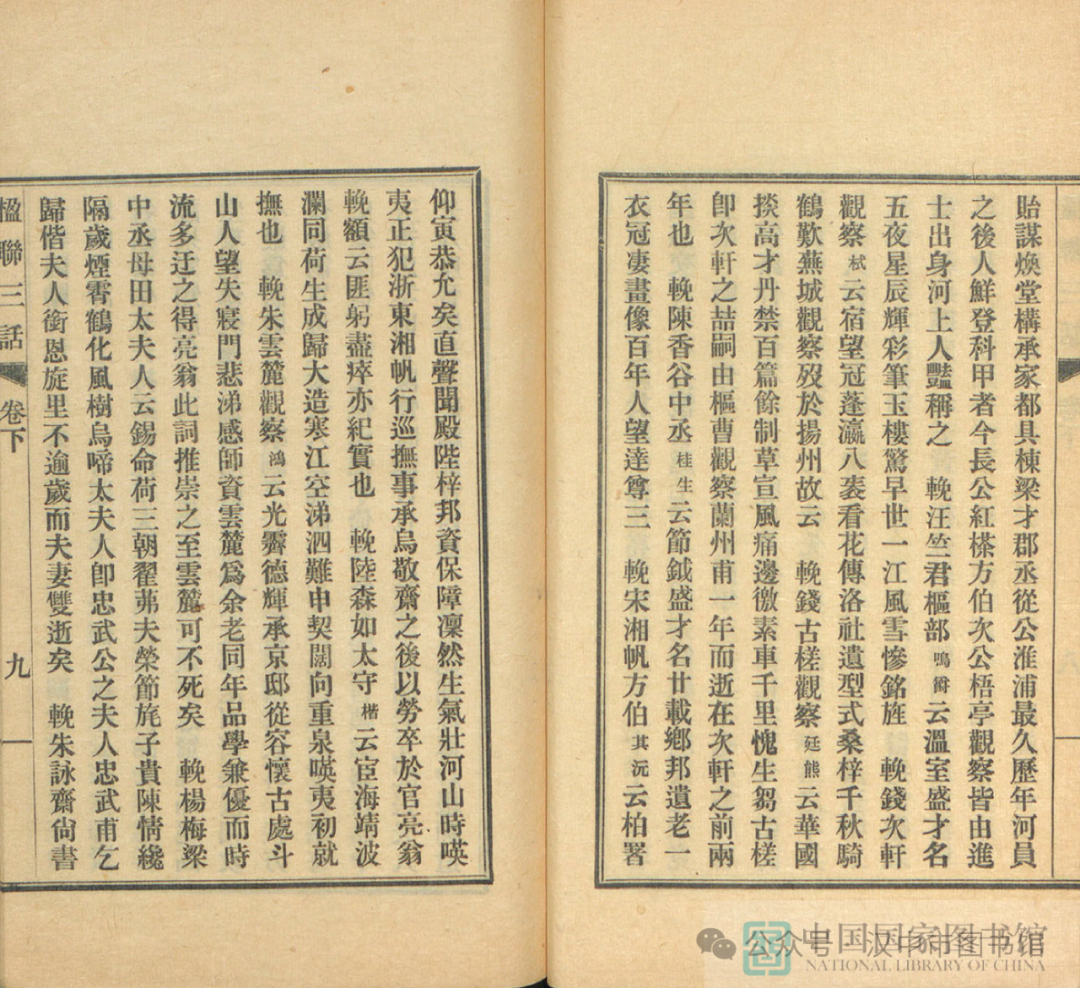 貽謀煥堂構承家都具棟梁才郡丞從公淮浦最久歷年河員
之後人鮮登科甲者今長公紅樣方伯次公梧亭觀察皆由進
士出身河上人豔稱之　輓汪竺君樞部鳴珂云溫室盛才名
五夜星辰輝彩筆玉樓驚早世一江風雪慘銘旌　輓錢次軒
觀察栻云宿望冠蓬瀛八袠看花傳洛社遺型式桑梓千秋騎
鶴歎蕪城觀察歿於揚州故云　輓錢古槎觀察廷熊云華國
掞高才丹禁百篇餘制草宣風痛邊徼素車千里愧生芻古槎
卽次軒之喆嗣由樞曹觀察蘭州甫一年而逝在次軒之前兩
年也　輓陳香谷中丞桂生云節鉞盛才名廿載鄉邦遺老一
衣冠凄畫像百年人望達尊三　輓宋湘帆方伯其沅云柏署
仰寅恭允矣直聲聞殿陛梓邦資保障凜然生氣壯河山時暎
夷正犯浙東湘帆行巡撫事承烏敬齋之後以勞卒於官亮翁
輓額云匪躬盡瘁亦紀實也　輓陸森如太守楷云宦海靖波
瀾同荷生成歸大造寒江空涕泗難申契闊向重泉暎夷初就
撫也　輓朱雲麓觀察鴻云光霽德輝承京邸從容懷古處斗
山人望失寢門悲涕感師資雲麓爲余老同年品學兼優而時
流多迂之得亮翁此詞推崇之至雲麓可不死矣　輓楊梅梁
中丞母田太夫人云錫命荷三朝翟茀夫榮節旄子貴陳情纔
隔歲煙霄鶴化風樹烏啼太夫人卽忠武公之夫人忠武甫乞
歸偕夫人銜恩旋里不逾歲而夫妻雙逝矣　輓朱詠齋尙書
楹聯三話　卷下　九
中国国家图书馆
NATIONAL LIBRARY OF CHINA
公众号·汉中市图书馆